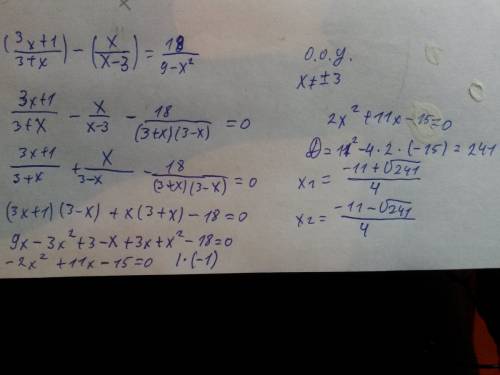 (3x+1/3+x) - (x/x-3) = 18/9-x²
3x+1/3+x - x/x-3 - 18/(3+x)(3-x) = 0
3x+1/3+x + x/3-x - 18/(3+x)(3-x) = 0
(3x+1)(3-x) + x(3+x) - 18 = 0
9x - 3x² + 3 - x + 3x + x² - 18 = 0
-2x² + 11x - 15 = 0 |·(-1)
О.О.У.
x ≠ ±3
2x² + 11x - 15 = 0
D = 11² - 4·2·(-15) = 241
x₁ = -11+√241/4
x₂ = -11-√241/4